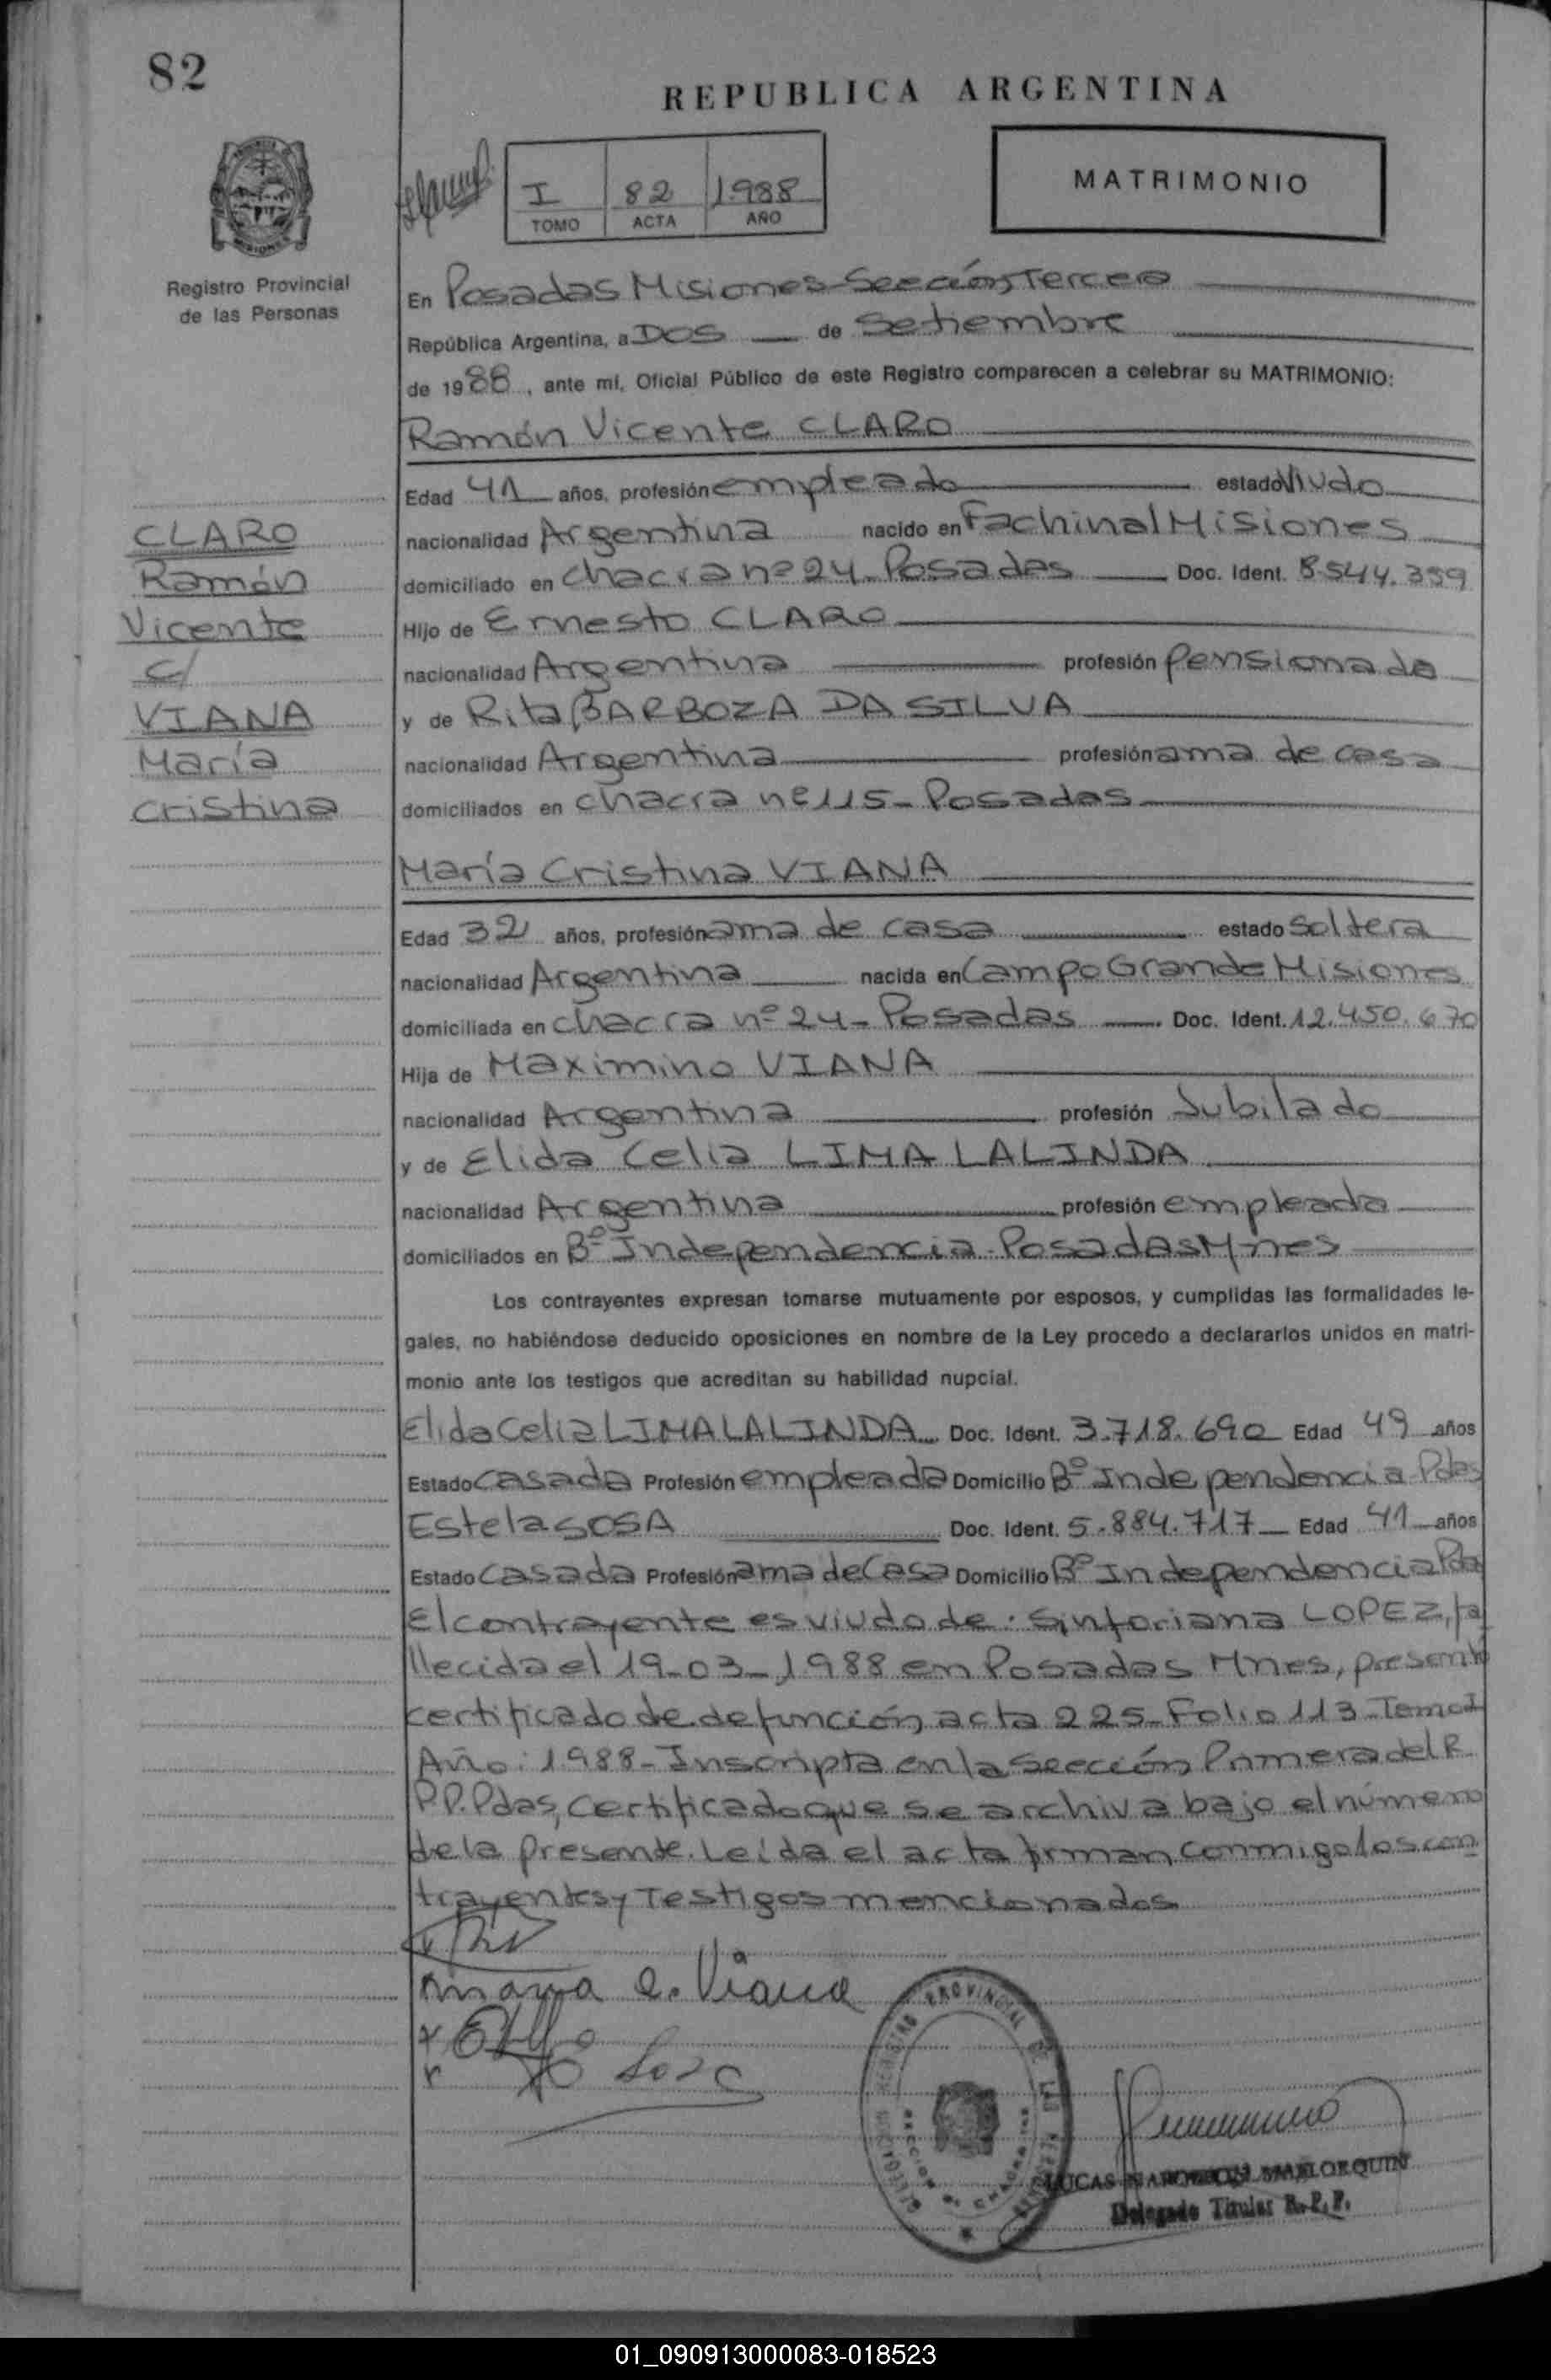 82
REPUBLICA ARGENTINA
I 82 1988
TOMO ACTA AÑO
MATRIMONIO
MISIONES
Registro Provincial
de las Personas
En Posadas Misiones-Sección Tercera
República Argentina, a DOS de Setiembre
de 1988, ante mí, Oficial Público de este Registro comparecen a celebrar su MATRIMONIO:
Ramón Vicente CLARO
Edad 41 años, profesión empleado estado Viudo
nacionalidad Argentina nacido en Fachinal Misiones
domiciliado en chacra nº 24-Posadas Doc. Ident. 8.544.359
Hijo de Ernesto CLARO
nacionalidad Argentina profesión pensionado
y de Rita BARBOZA DA SILVA
nacionalidad Argentina profesión ama de casa
domiciliados en chacra nº 115-Posadas
CLARO
Ramón
Vicente
c/
VIANA
María
Cristina
María Cristina VIANA
Edad 32 años, profesión ama de casa estado Soltera
nacionalidad Argentina nacida en Campo Grande Misiones
domiciliada en chacra nº 24-Posadas Doc. Ident. 12.450.670
Hija de Maximino VIANA
nacionalidad Argentina profesión Jubilado
y de Elida Celia LIMA LALINDA
nacionalidad Argentina profesión empleada
domiciliados en Bº Independencia-Posadas Mnes
Los contrayentes expresan tomarse mutuamente por esposos, y cumplidas las formalidades le-
gales, no habiéndose deducido oposiciones en nombre de la Ley procedo a declararlos unidos en matri-
monio ante los testigos que acreditan su habilidad nupcial.
Elida Celia LIMA LALINDA Doc. Ident. 3.718.690 Edad 49 años
Estado casada Profesión empleada Domicilio Bº Independencia-Pdas
Estela SOSA Doc. Ident. 5.884.717 Edad 41 años
Estado casada Profesión ama de Casa Domicilio Bº Independencia Pda
El contrayente es viudo de: Sinforiana LOPEZ, fa
llecida el 19-03-1988 en Posadas Mnes, presentó
certificado de defunción, acta 225-Folio 113-Tomo I
Año: 1988-Inscripta en la Sección Primera del R.
P.P. Pdas, Certificado que se archiva bajo el número
de la presente. Leída el acta firman conmigo los con
trayentes y Testigos mencionados
Maria C. Viana
Sosa
REGISTRO PROVINCIAL DE LAS PERSONAS
LUCAS MALLORQUIN
Delegado Titular R.P.P.
01_090913000083-018523